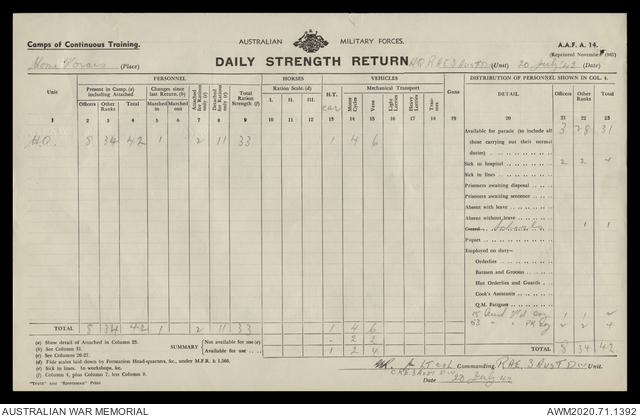 Camps of Continuous Training.
AUSTRALIAN MILITARY FORCES.
A.A.F. A. 14.
(Reprinted November, 1941)
DAILY STRENGTH RETURN
HQ RAE 3 Aust Div (Unit) 20 July 42
(Place)
PERSONNEL
HORSES
VEHICLES
DISTRIBUTION OF PERSONNEL SHOWN IN COL. 4.
Unit
Present in Camp (a) including Attached
Changes since last Return. (b)
Attached for Rations only (c)
Detached for Rations only (e)
Total Ration Strength (f)
Ration Scale. (d)
H.T.
Mechanical Transport
Guns
DETAIL
Officers
Other Ranks
Total
Officers Other Ranks Total Marched in Marched out
I. II. III.
car
Motor Cycles Vans Light Lorries Heavy Lorries Tractors
1 2 3 4 5 6 7 8 9 10 11 12 13 14 15 16 17 18 19 20 21 22 23
H.Q. 8 34 42 1 2 11 33 1 4 6
Available for parade (to include all those carrying out their normal duties) 3 28 31
Sick in hospital 2 2 4
Sick in lines
Prisoners awaiting disposal
Prisoners awaiting sentence
Absent with leave
Absent without leave
Guard 1 1
Piquet
Employed on duty—
Orderlies
Batmen and Grooms
Hut Orderlies and Guards
Cook's Assistants
Q.M. Fatigues
15 Aust Fd Coy 1 1 2
63 " " Pk Coy 2 2 4
TOTAL 8 34 42 1 2 11 33 1 4 6
TOTAL 8 34 42
SUMMARY
Not available for use (e) - 2 2
Available for use 1 2 4
(a) Show detail of Attached in Column 25.
(b) See Column 31.
(c) See Columns 26-27.
(d) Fide scales laid down by Formation Head-quarters, &c., under M.F.R. & I.
(e) Sick in lines. In workshops, &c.
(f) Column 4, plus Column 7, less Column 8.
"Truth" and "Sportsman" Print
Lt Col Commanding RAE. 3 Aust Div Unit.
C.R.E. 3 Aust Div
Date 20 July 42
AUSTRALIAN WAR MEMORIAL
AWM2020.71.1392